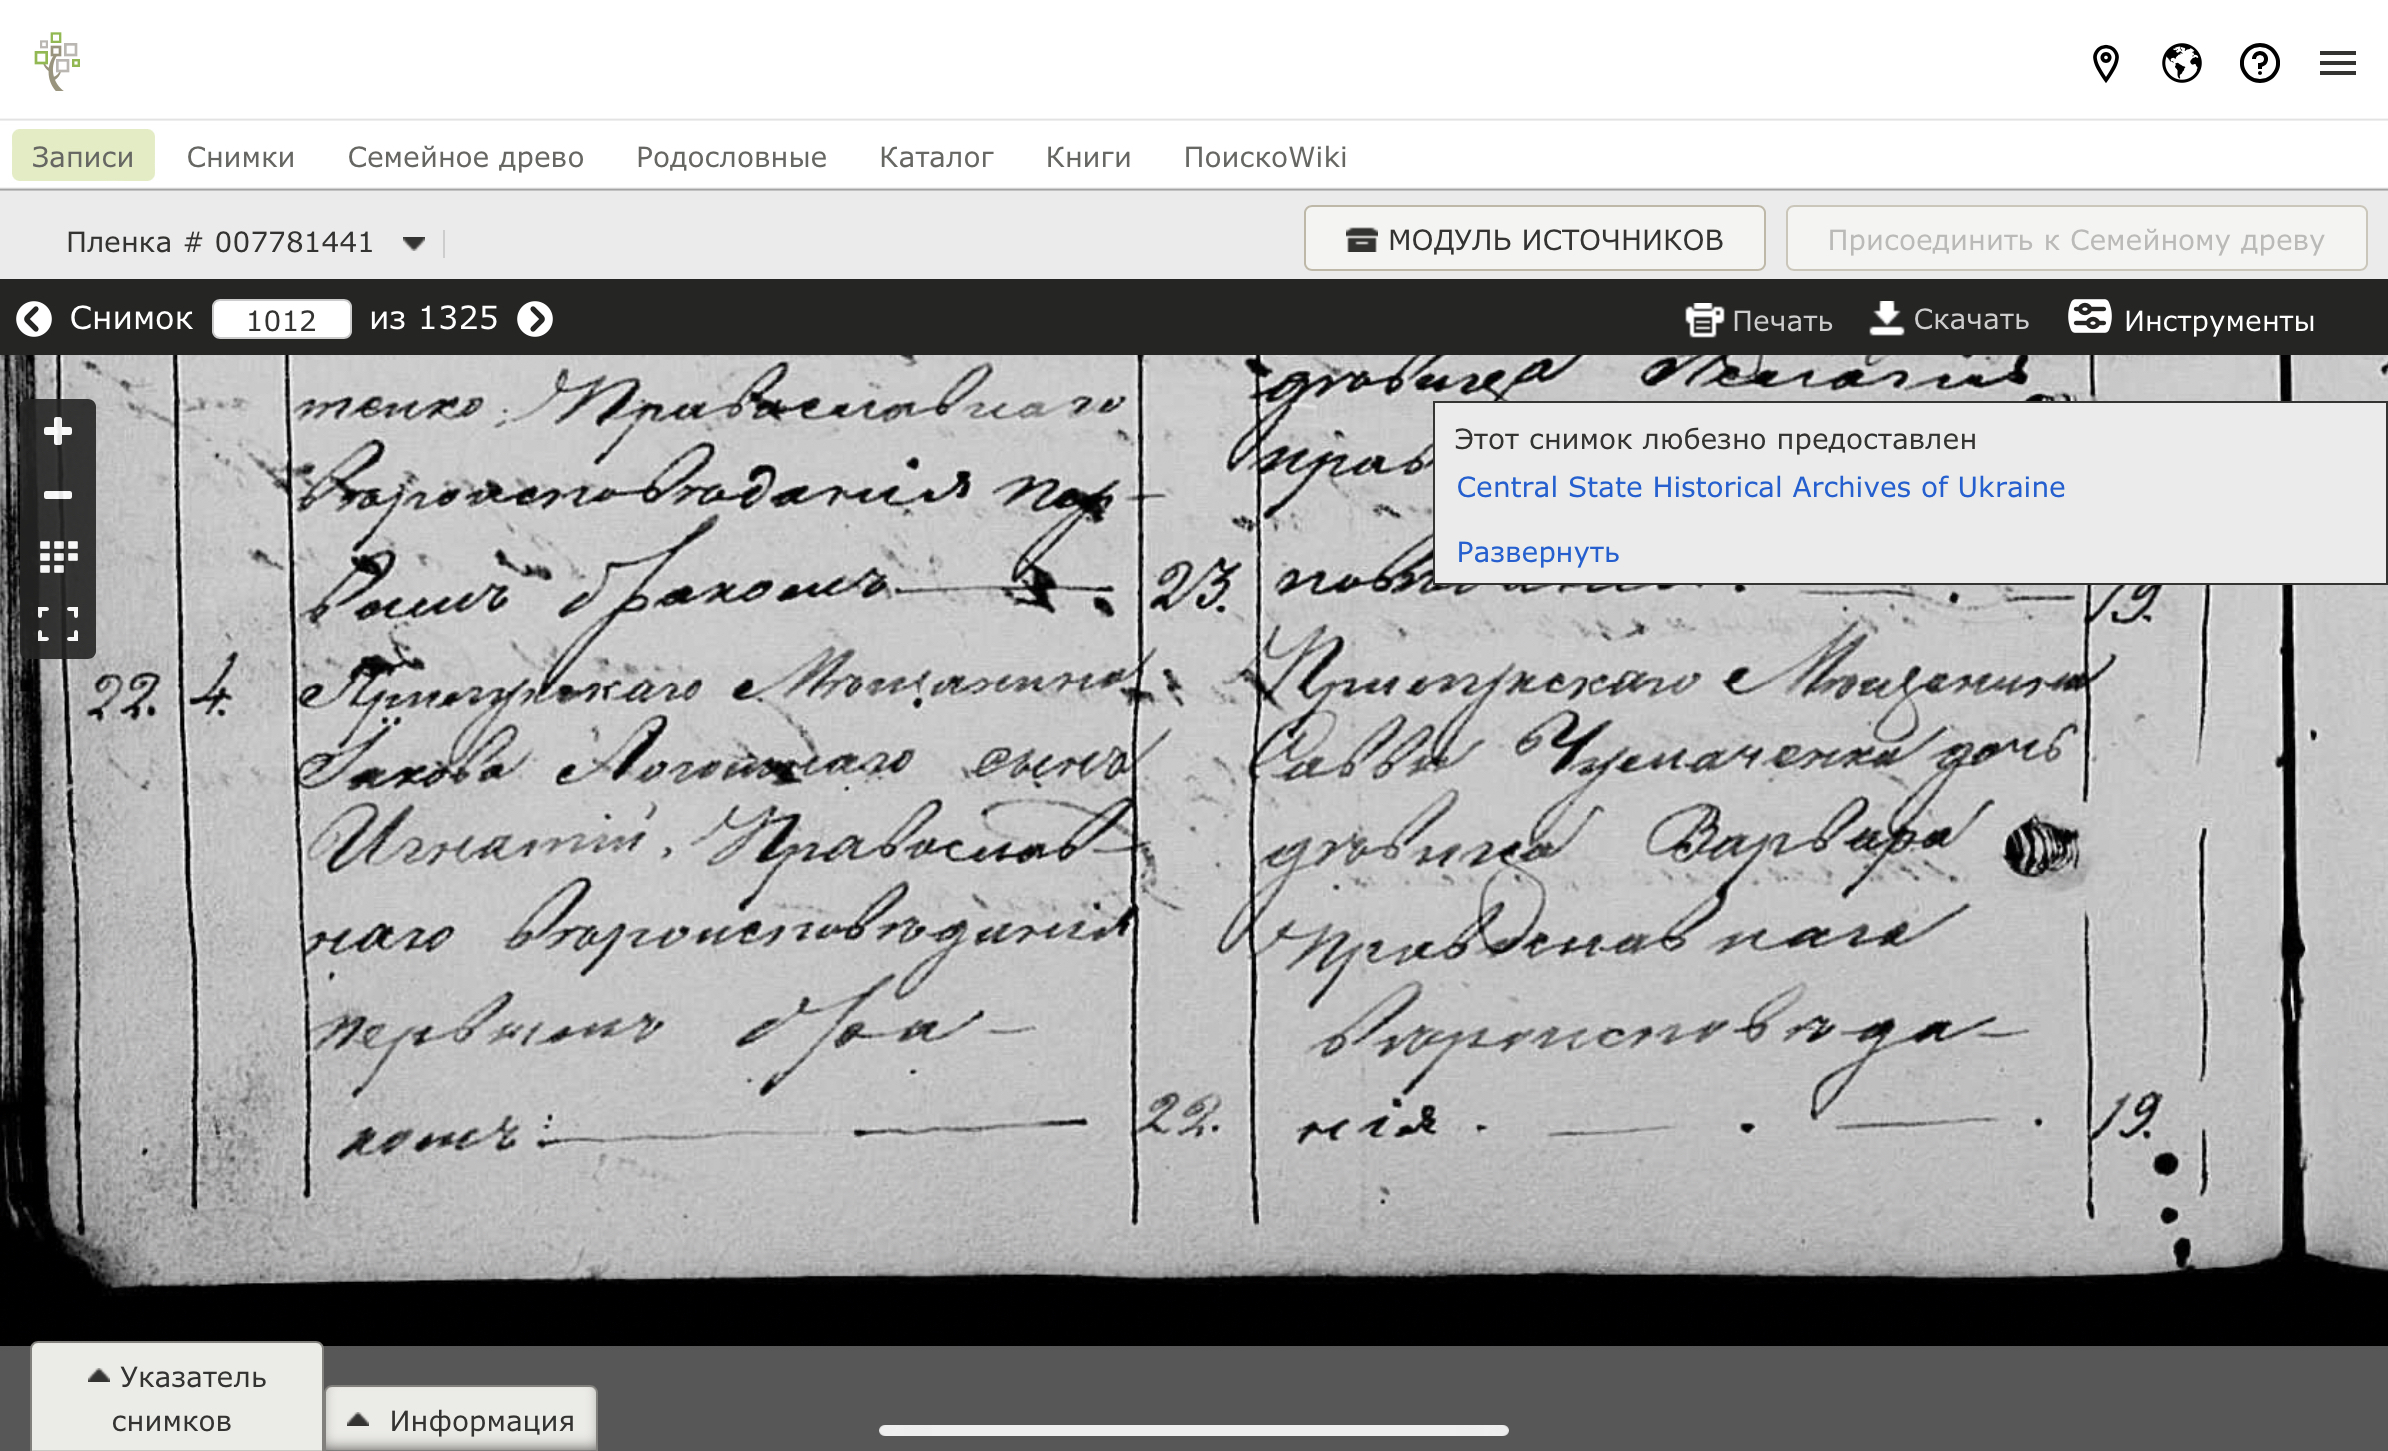 Записи Снимки Семейное древо Родословные Каталог Книги ПоискоWiki
Пленка # 007781441
МОДУЛЬ ИСТОЧНИКОВ
Присоединить к Семейному древу
Снимок 1012 из 1325
Печать Скачать Инструменты
Этот снимок любезно предоставлен
Central State Historical Archives of Ukraine
Развернуть
тенко. Православнаго
вѣроисповѣданія пер-
вымъ бракомъ
22. 4. Прилуцкаго Мѣщанина
Іакова сынъ
Игнатій, Православ-
наго вѣроисповѣданія
первымъ бра-
комъ:
23.
22.
дѣвица Пелагія
прав
19.
Прилуцкаго Мѣщанина
Саввы Чумаченка дочь
дѣвица Варвара
Православнаго
вѣроисповѣда-
нія.
19.
Указатель
снимков
Информация